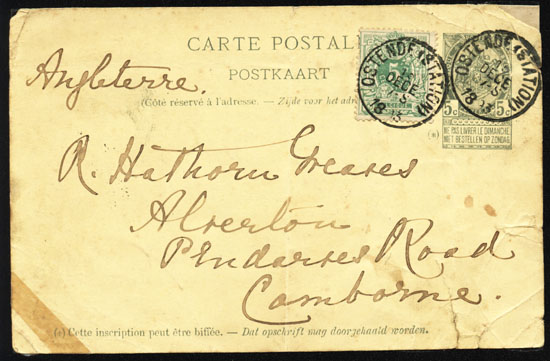 CARTE POSTALE
POSTKAART
(Côté réservé à l'adresse. — Zijde voor het adres
Angleterre.
OSTENDE (STATION)
DECE
18
OSTENDE (STATION)
DECE
18
5c 5c
(1)
NE PAS LIVRER LE DIMANCHE
NIET BESTELLEN OP ZONDAG
R. Hathorn Greaves
Alverton
Pendarves Road
Camborne.
(1) Cette inscription peut être biffée. — Dat opschrift mag doorgehaald worden.